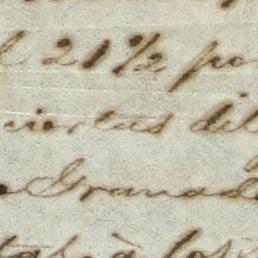 l 21 1/2 po
ciertas dil
Granad
tas à los